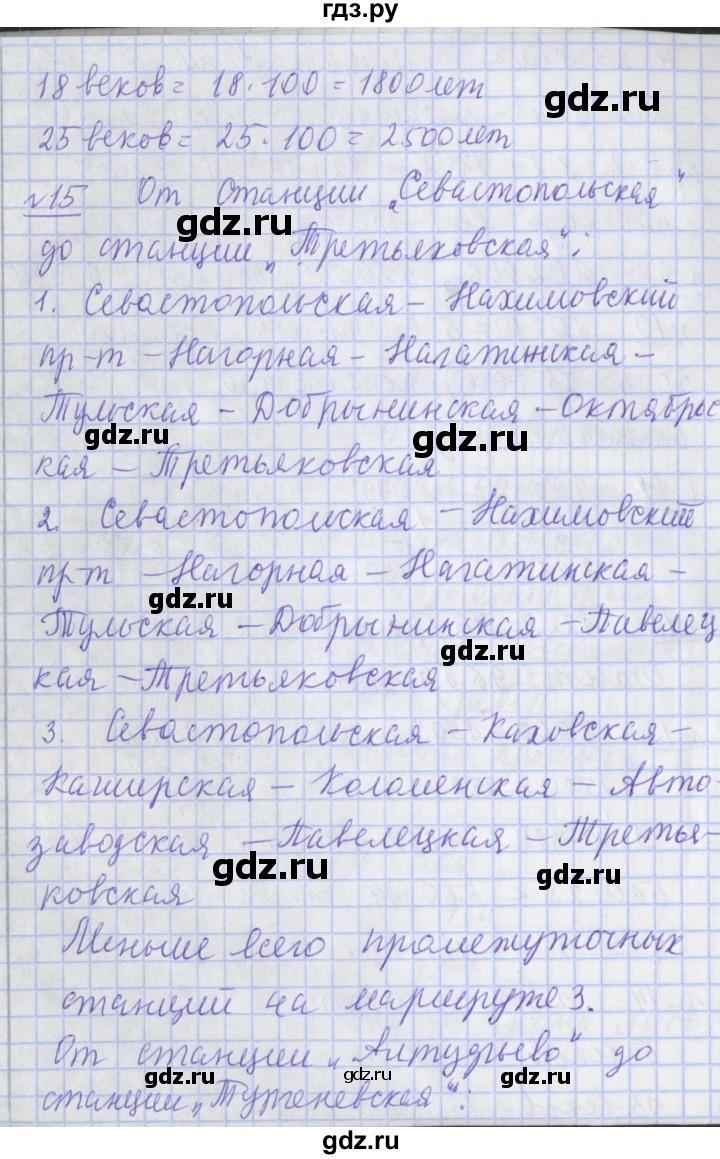 гдз.ру
18 веков = 18 · 100 = 1800 лет
gdz.ru
25 веков = 25 · 100 = 2500 лет
№15 От станции „Севастопольская"
gdz.ru
до станции „Третьяковская":
gdz.ru
1. Севастопольская – Нахимовский
пр-т – Нагорная – Нагатинская –
gdz.ru
Тульская – Добрынинская – Октябрьс
gdz.ru
gdz.ru
кая – Третьяковская
2. Севастопольская – Нахимовский
пр-т – Нагорная – Нагатинская –
gdz.ru
Тульская – Добрынинская – Павелец
gdz.ru
кая – Третьяковская
3. Севастопольская – Каховская –
gdz.ru
Каширская – Коломенская – Авто-
заводская – Павелецкая – Третья-
gdz.ru
gdz.ru
ковская
Меньше всего промежуточных
станций на маршруте 3.
От станции „Алтудьево" до
gdz.ru
gdz.ru
gdz.ru
станции „Тургеневская":
gdz.ru